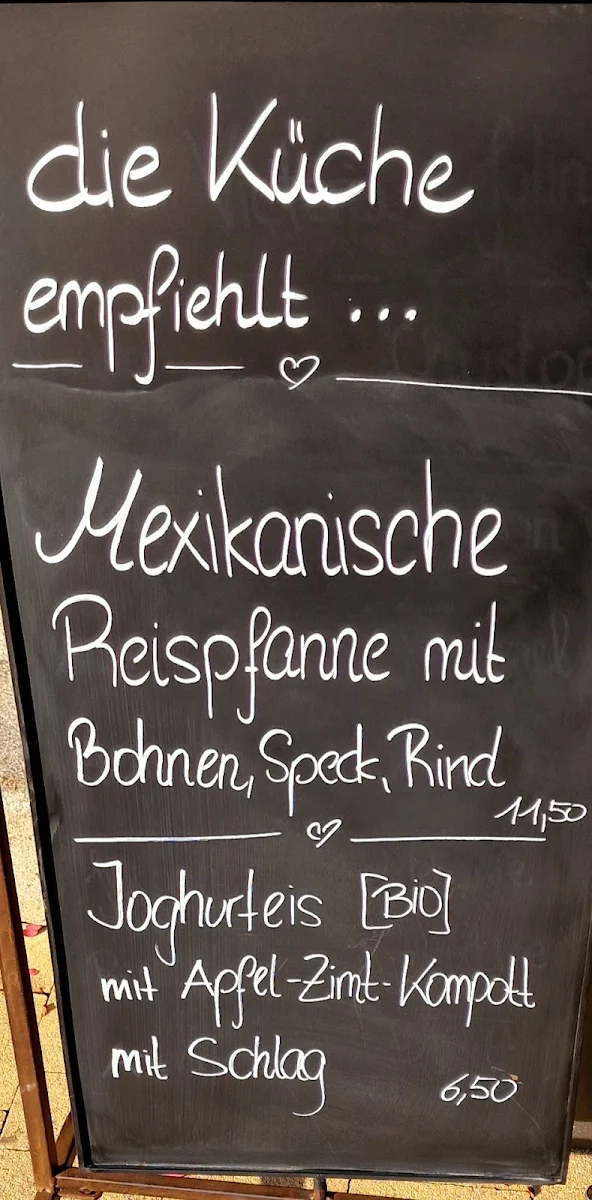 die Küche
empfiehlt ...
Mexikanische
Reispfanne mit
Bohnen, Speck, Rind
11,50
Joghurteis [BIO]
mit Apfel-Zimt-Kompott
mit Schlag
6,50